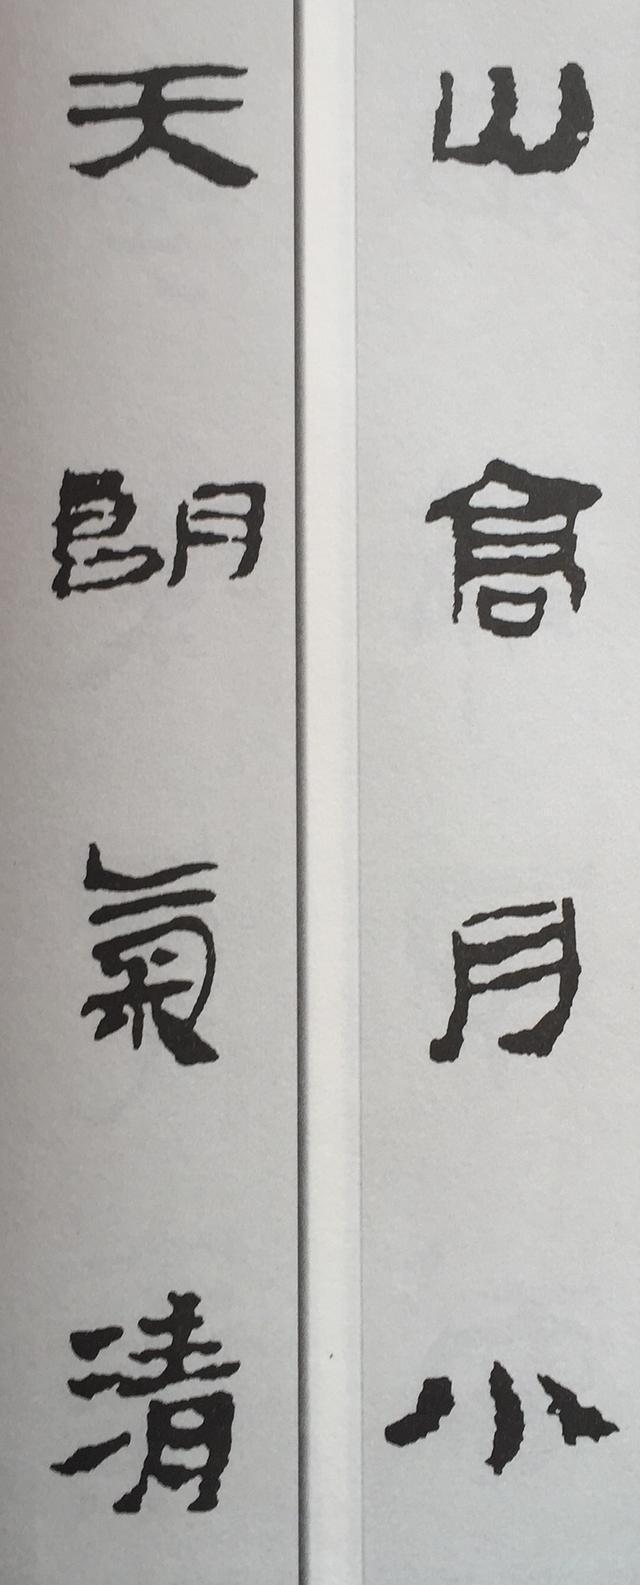 山高月小
天朗氣清